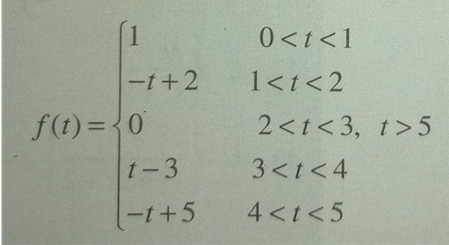 1 0<t<1
-t+2 1<t<2
f(t)= 0 2<t<3, t>5
t-3 3<t<4
-t+5 4<t<5